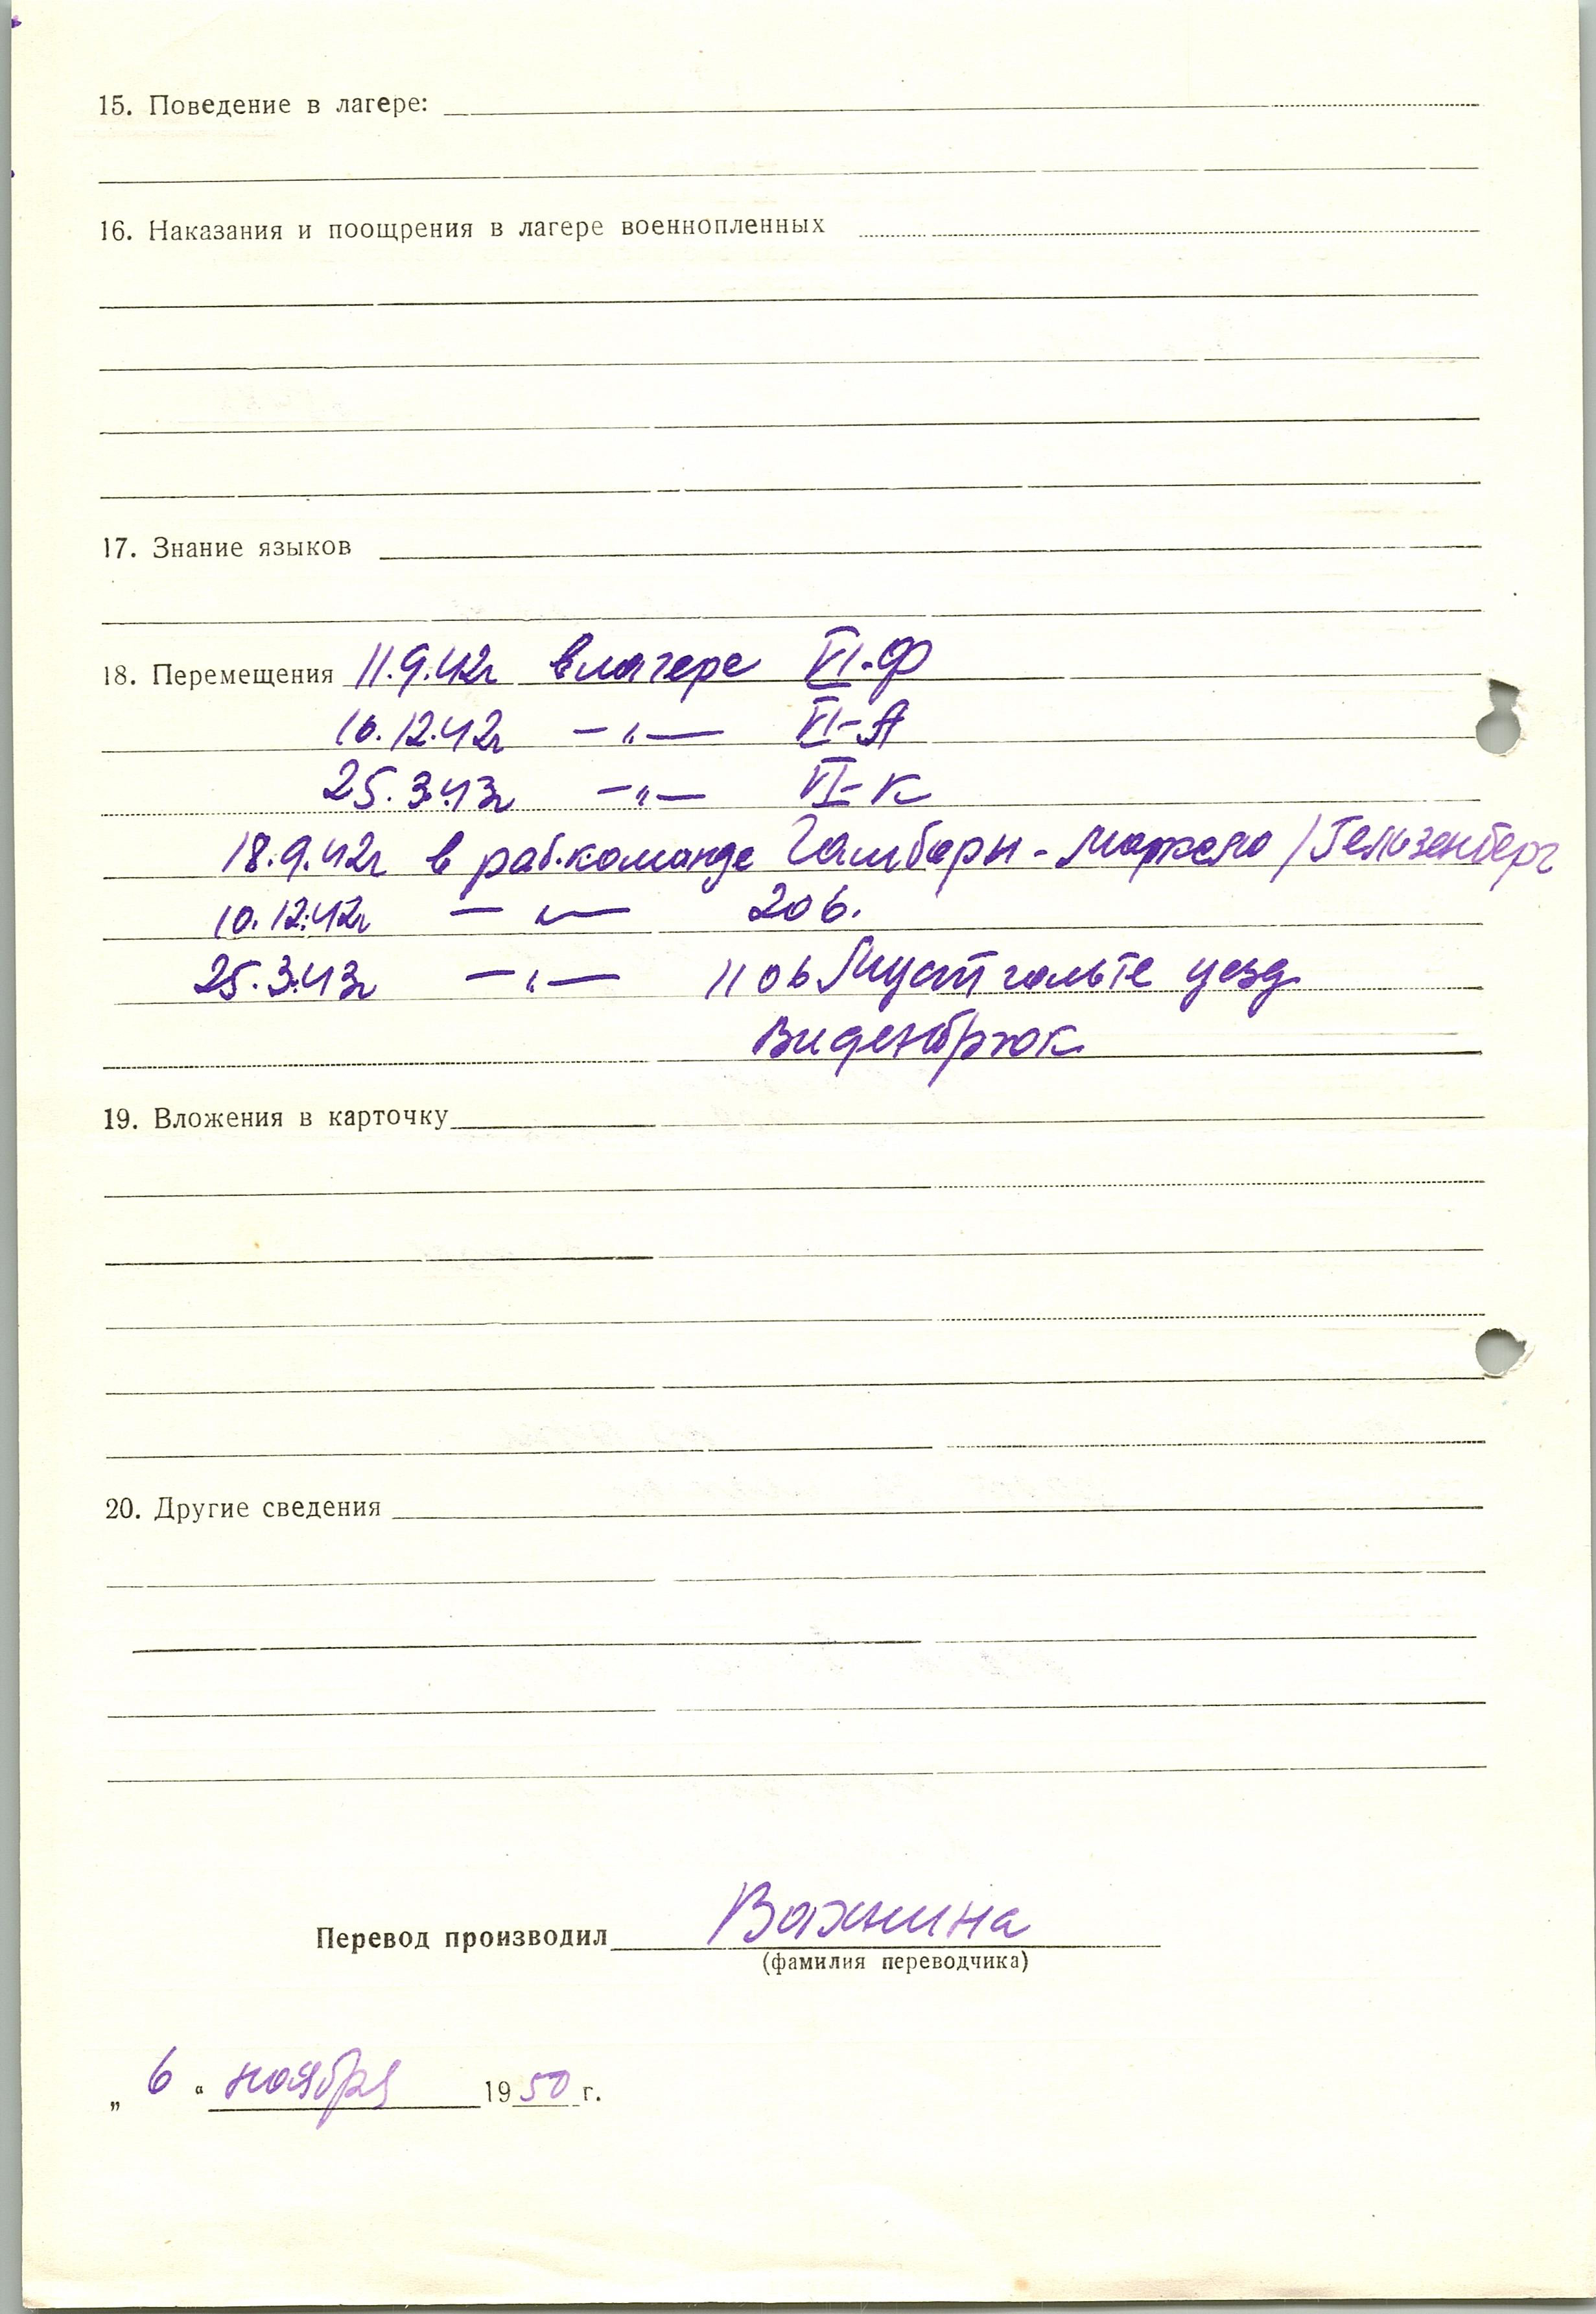 15. Поведение в лагере:
16. Наказания и поощрения в лагере военнопленных
17. Знание языков
18. Перемещения 11.9.42г в лагере VI-Ф
10.12.42г —"— VI-А
25.3.43г —"— VI-К
18.9.42г в раб.команде Гамборн - /Гельзенберг
10.12.42г —"— 206.
25.3.43г —"— уезд
Виденбрюк
19. Вложения в карточку
20. Другие сведения
Перевод производил Важнина
(фамилия переводчика)
„ 6 “ ноября 1950 г.